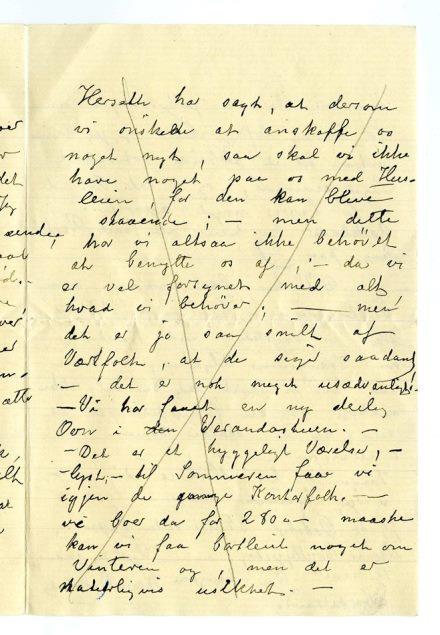 Herseth har sagt, at dersom
vi önskede at anskaffe os
noget nyt, saa skal vi ikke
have noget paa os med Hus-
leien, for den kan blive
staaende; – men dette
har vi altsaa ikke behövet
at benytte os af, – da vi
er vel forsynet med alt
hvad vi behöver, — men
det er jo saa snilt af
Værtfolk, at de siger saadant
– det er nok meget usædvanligt.
– Vi har faaet en ny deilig
Ovn i den Verandastuen. –
– Det er et hyggeligt Værelse, –
lyst, – til Sommeren faar vi
igjen de mange Kontorfolk. –
vi boer da for 280 – maaske
kan vi faa bortleiet noget om
Vinteren og, men det er
naturligvis usikkert. –